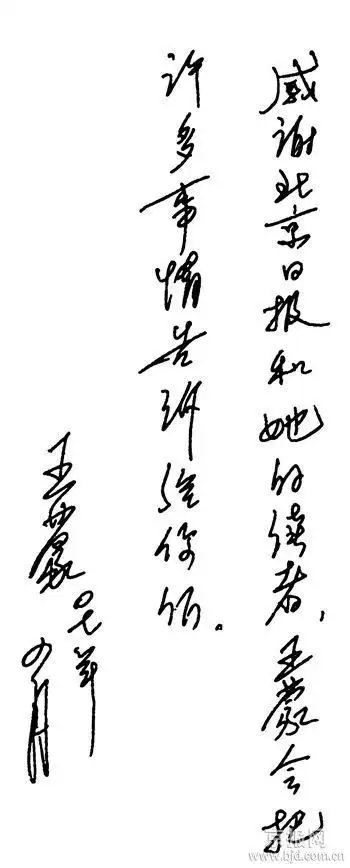 感谢北京日报和她的读者，王蒙会把
许多事情告诉给你们。
王蒙
〇七年
四月
京报网
www.bjd.com.cn